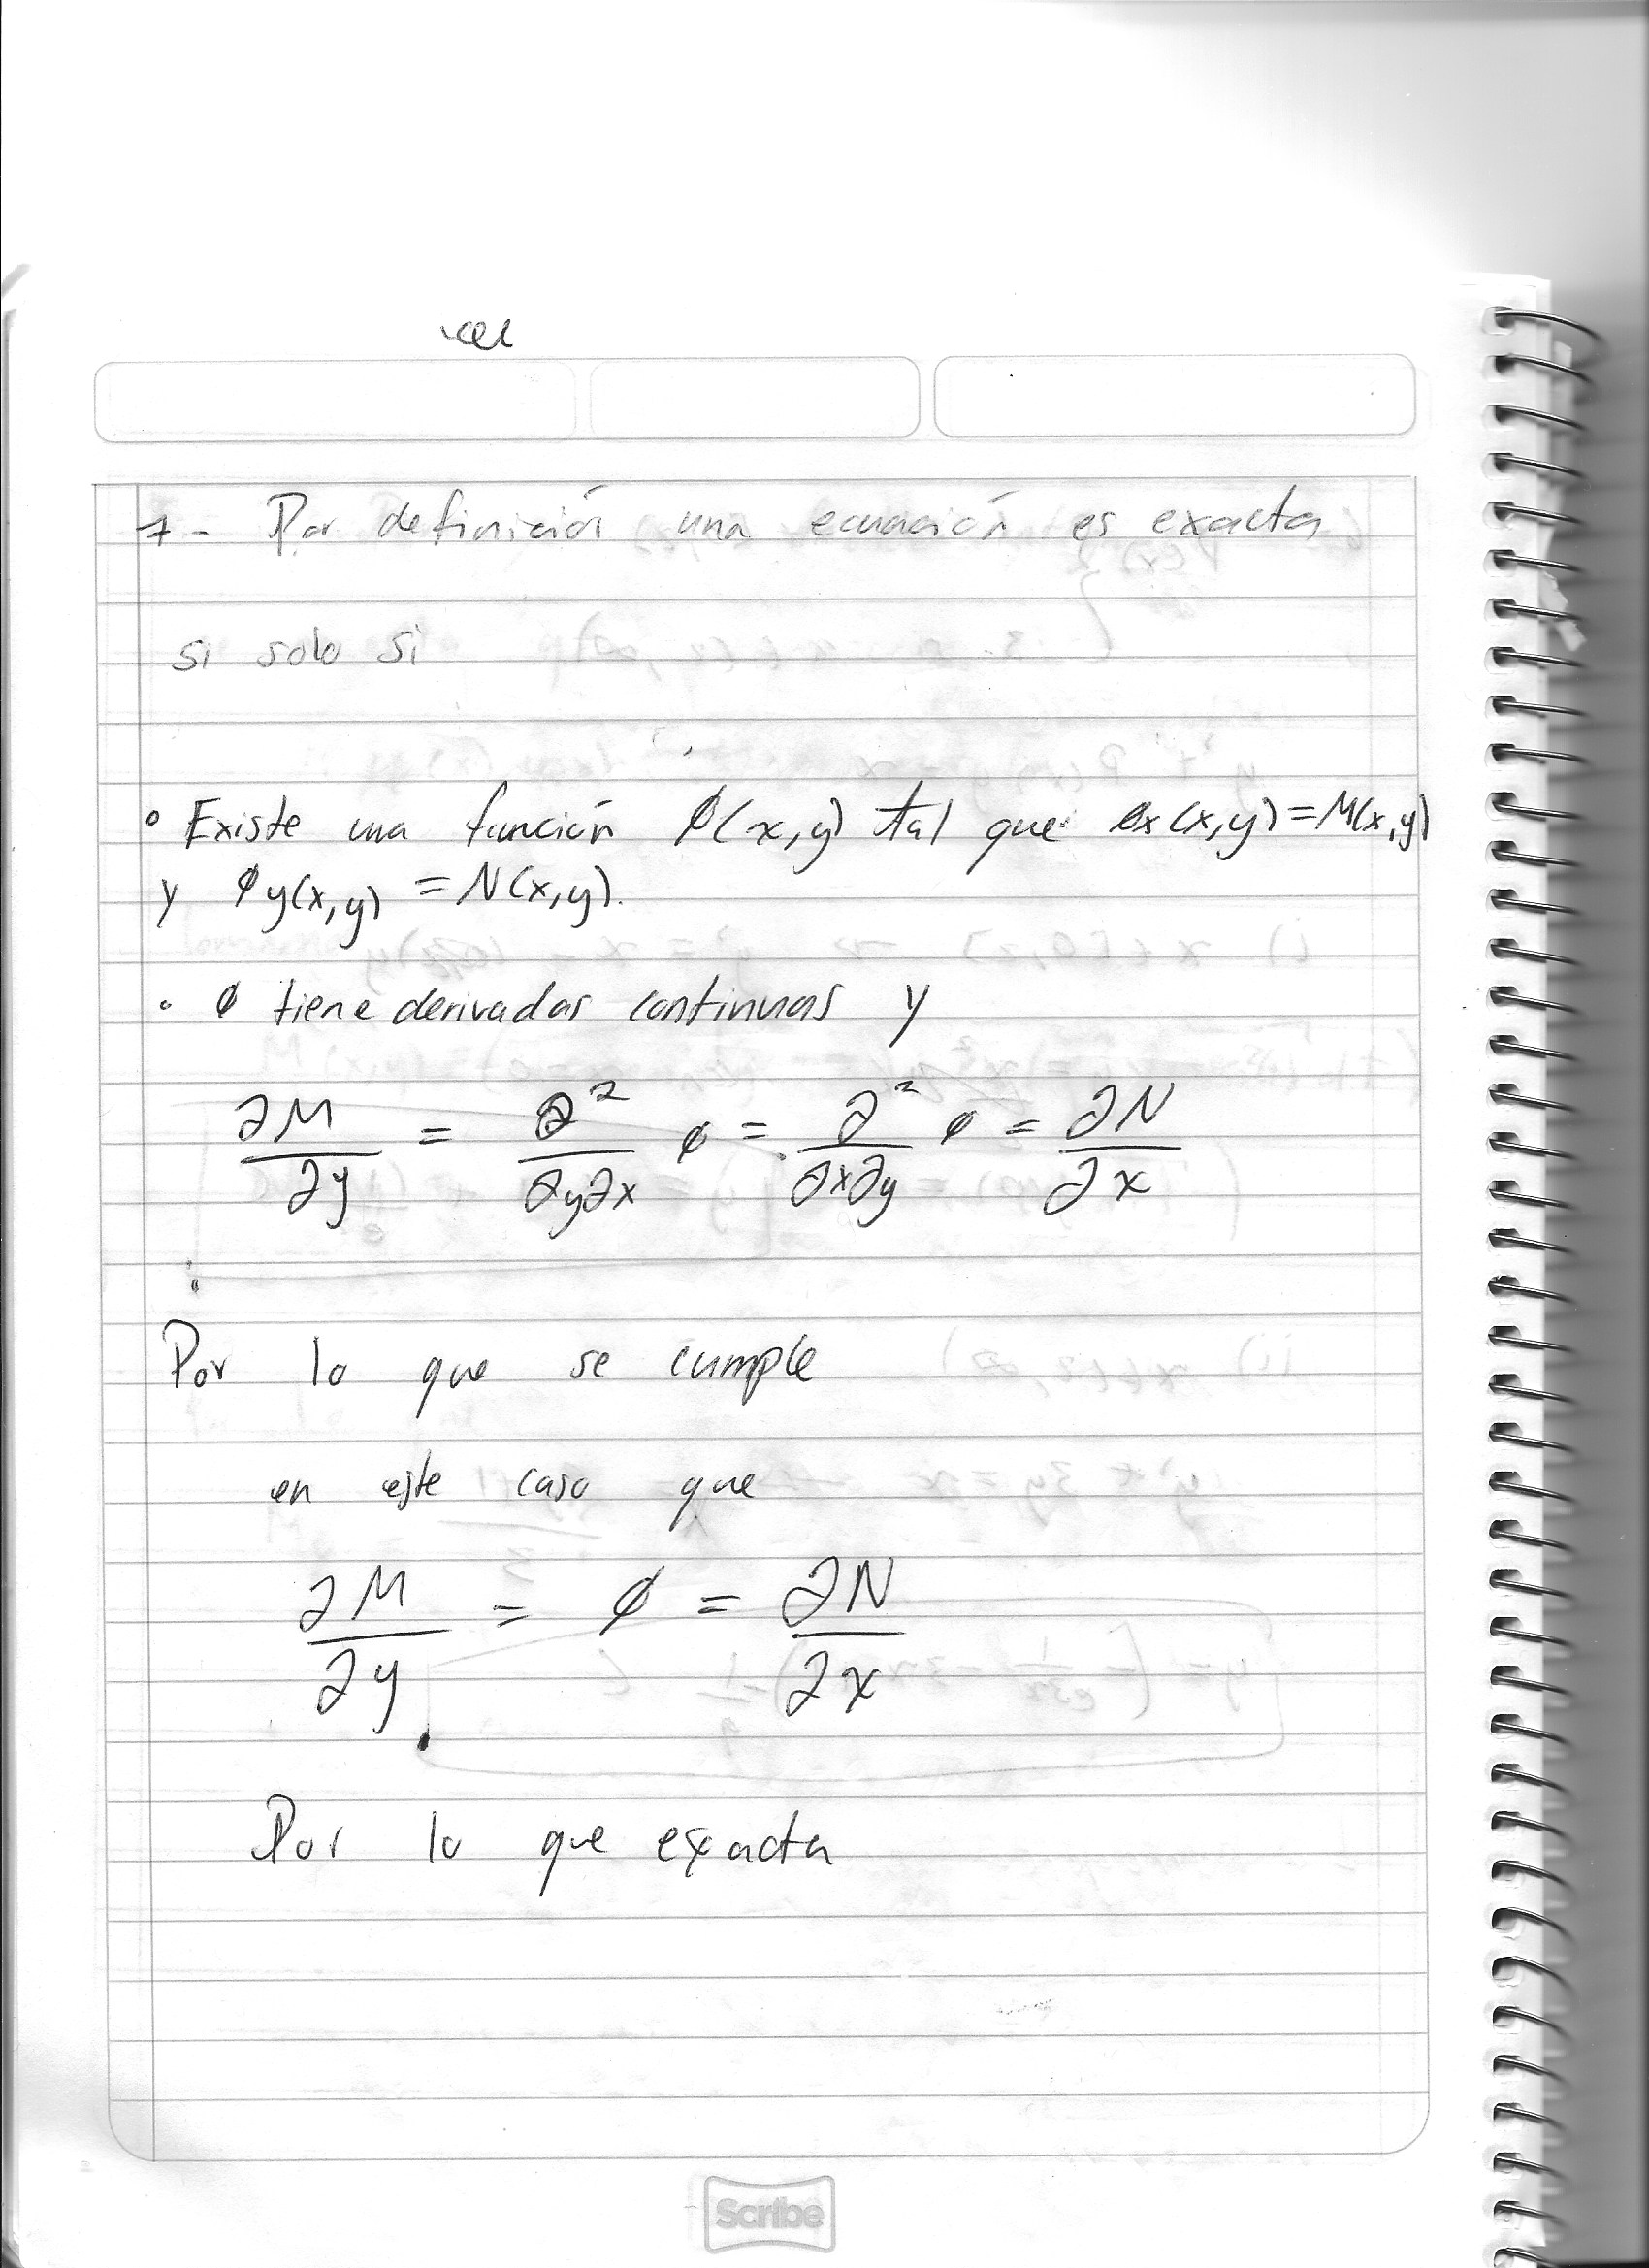 7- Por definición una ecuación es exacta
si solo si
° Existe una función ϕ(x,y) tal que ϕx(x,y)=M(x,y)
y ϕy(x,y) = N(x,y).
° ϕ tiene derivadas continuas y
∂M/∂y = ∂²/∂y∂x ϕ = ∂²/∂x∂y ϕ = ∂N/∂x
Por lo que se cumple
en este caso que
∂M/∂y = ϕ = ∂N/∂x
Por lo que exacta
Scribe